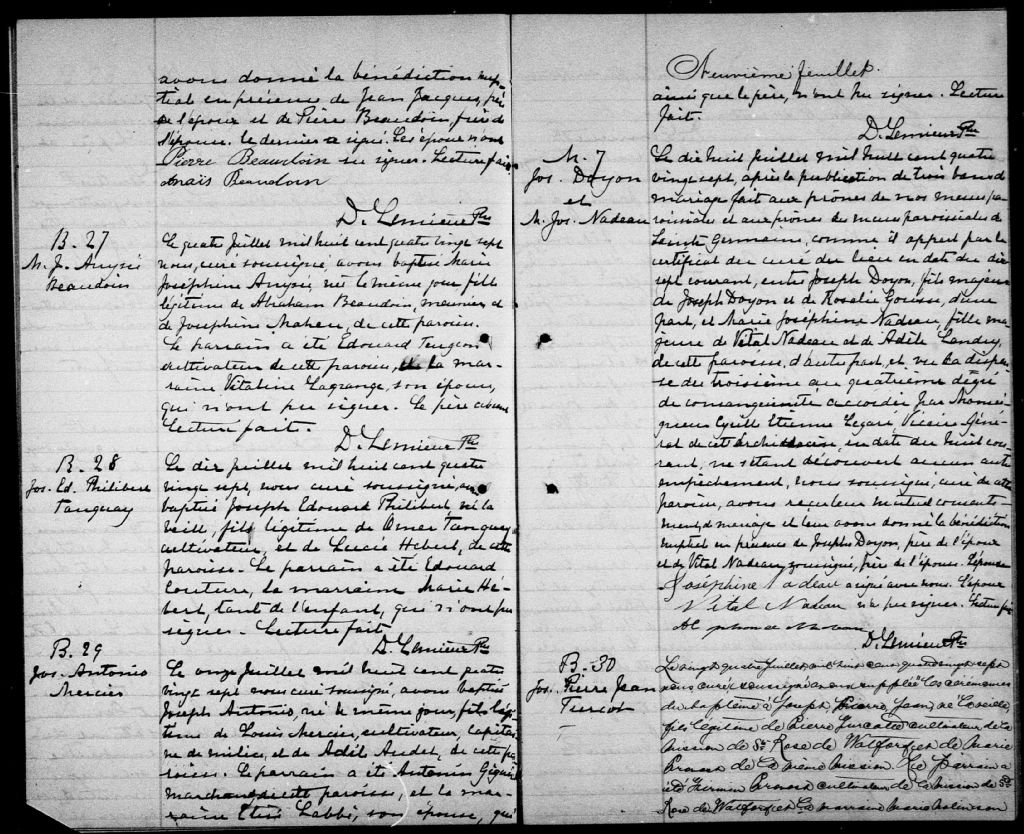 avons donné la bénédiction nup-
tial en présence de Jean Jacques, père
de l'époux et de Pierre Beaudoin, frère de
l'épouse. le dernier a signé. Les époux n'ont
Pierre Beaudoin su signer. Lecture faite
Anaïs Beaudoin
D. Lemieux Ptre
B. 27
M. J. Anysie
Beaudoin
Le quatre Juillet mil huit cent quatre vingt sept
nous, curé soussigné, avons baptisé Marie
Joséphine Anysie, née le même jour fille
légitime de Abraham Beaudoin, meunier et
de Joséphine Maheu, de cette paroisse.
Le parrain a été Edouard
cultivateur de cette paroisse, et la mar-
raine Vitaline Lagrange, son épouse,
qui n'ont pu signer. Le père
Lecture fait.
D. Lemieux Ptre
B. 28
Jos. Ed. Philibert
Tanguay
Le dix juillet mil huit cent quatre
vingt sept, nous curé soussigné, avons
baptisé Joseph Edouard Philibert, né la
veille, fils légitime de Omer Tanguay
cultivateur, et de Lucie Hébert, de cette
paroisse. Le parrain a été Edouard
Couture, la marraine Marie Hé-
bert, tante de l'enfant, qui n'ont pu
signer. Lecture fait.
D. Lemieux Ptre
B. 29
Jos. Antonio
Mercier
Le onze Juillet mil huit cent quatre
vingt sept nous curé soussigné, avons baptisé
Joseph Antonio, né le même jour, fils légi-
time de Louis Mercier, cultivateur, capitai-
ne de milice, et de Adèl Audet, de cette pa-
roisse. Le parrain a été Antonin Giguère
marchand de cette paroisse, et la mar-
raine Labbé, son épouse, qui
Neuvième feuillet.
ainsi que le père, n'ont pu signer. Lecture
fait.
D. Lemieux Ptre
M. 7
Jos. Doyon
et
M. Jos. Nadeau
Le dix huit juillet mil huit cent quatre
vingt sept, après la publication de trois bans de
mariage fait aux prônes de nos messes pa-
roissiales et aux prônes des messes paroissiales de
Sainte Germaine, comme il appert par le
certificat du curé du lieu en date du dix
sept courant, entre Joseph Doyon, fils majeur
de Joseph Doyon et de Rosalie, d'une
part, et Marie Joséphine Nadeau, fille ma-
jeure de Vital Nadeau et de Adèle Landry,
de cette paroisse, d'autre part, et vu la dispen-
se du troisième au quatrième degré
de consanguinité accordée par Monsei-
gneur Cyrille Etienne Legaré, Vicaire Géné-
ral de cet archidiocèse, en date du huit cou-
rant, ne s'étant découvert aucun autre
empêchement, nous soussigné, curé de cette
paroisse, avons reçu leur mutuel consente-
ment de mariage et leur avons donné la bénédiction
nuptial en présence de Joseph Doyon, père de l'époux
et de Vital Nadeau soussigné, frère de l'épouse. L'épouse
Joséphine Nadeau a signé avec nous. L'époux
Vital Nadeau n'a pu signer. Lecture faite
Alphonse
D. Lemieux Ptre
B. 30
Jos. Pierre Jean
Turcot
Le vingt quatre Juillet mil huit cent quatre vingt sept
nous curé soussigné avons suppléé les cérémonies
du baptême à Joseph Pierre Jean né
fils légitime de Pierre Turcotte cultivateur de la
mission de Ste Rose de Watford et de Marie
Provost de la même mission. Le parrain a
été Provost cultivateur de la mission de Ste
Rose de Watford et la marraine Marie